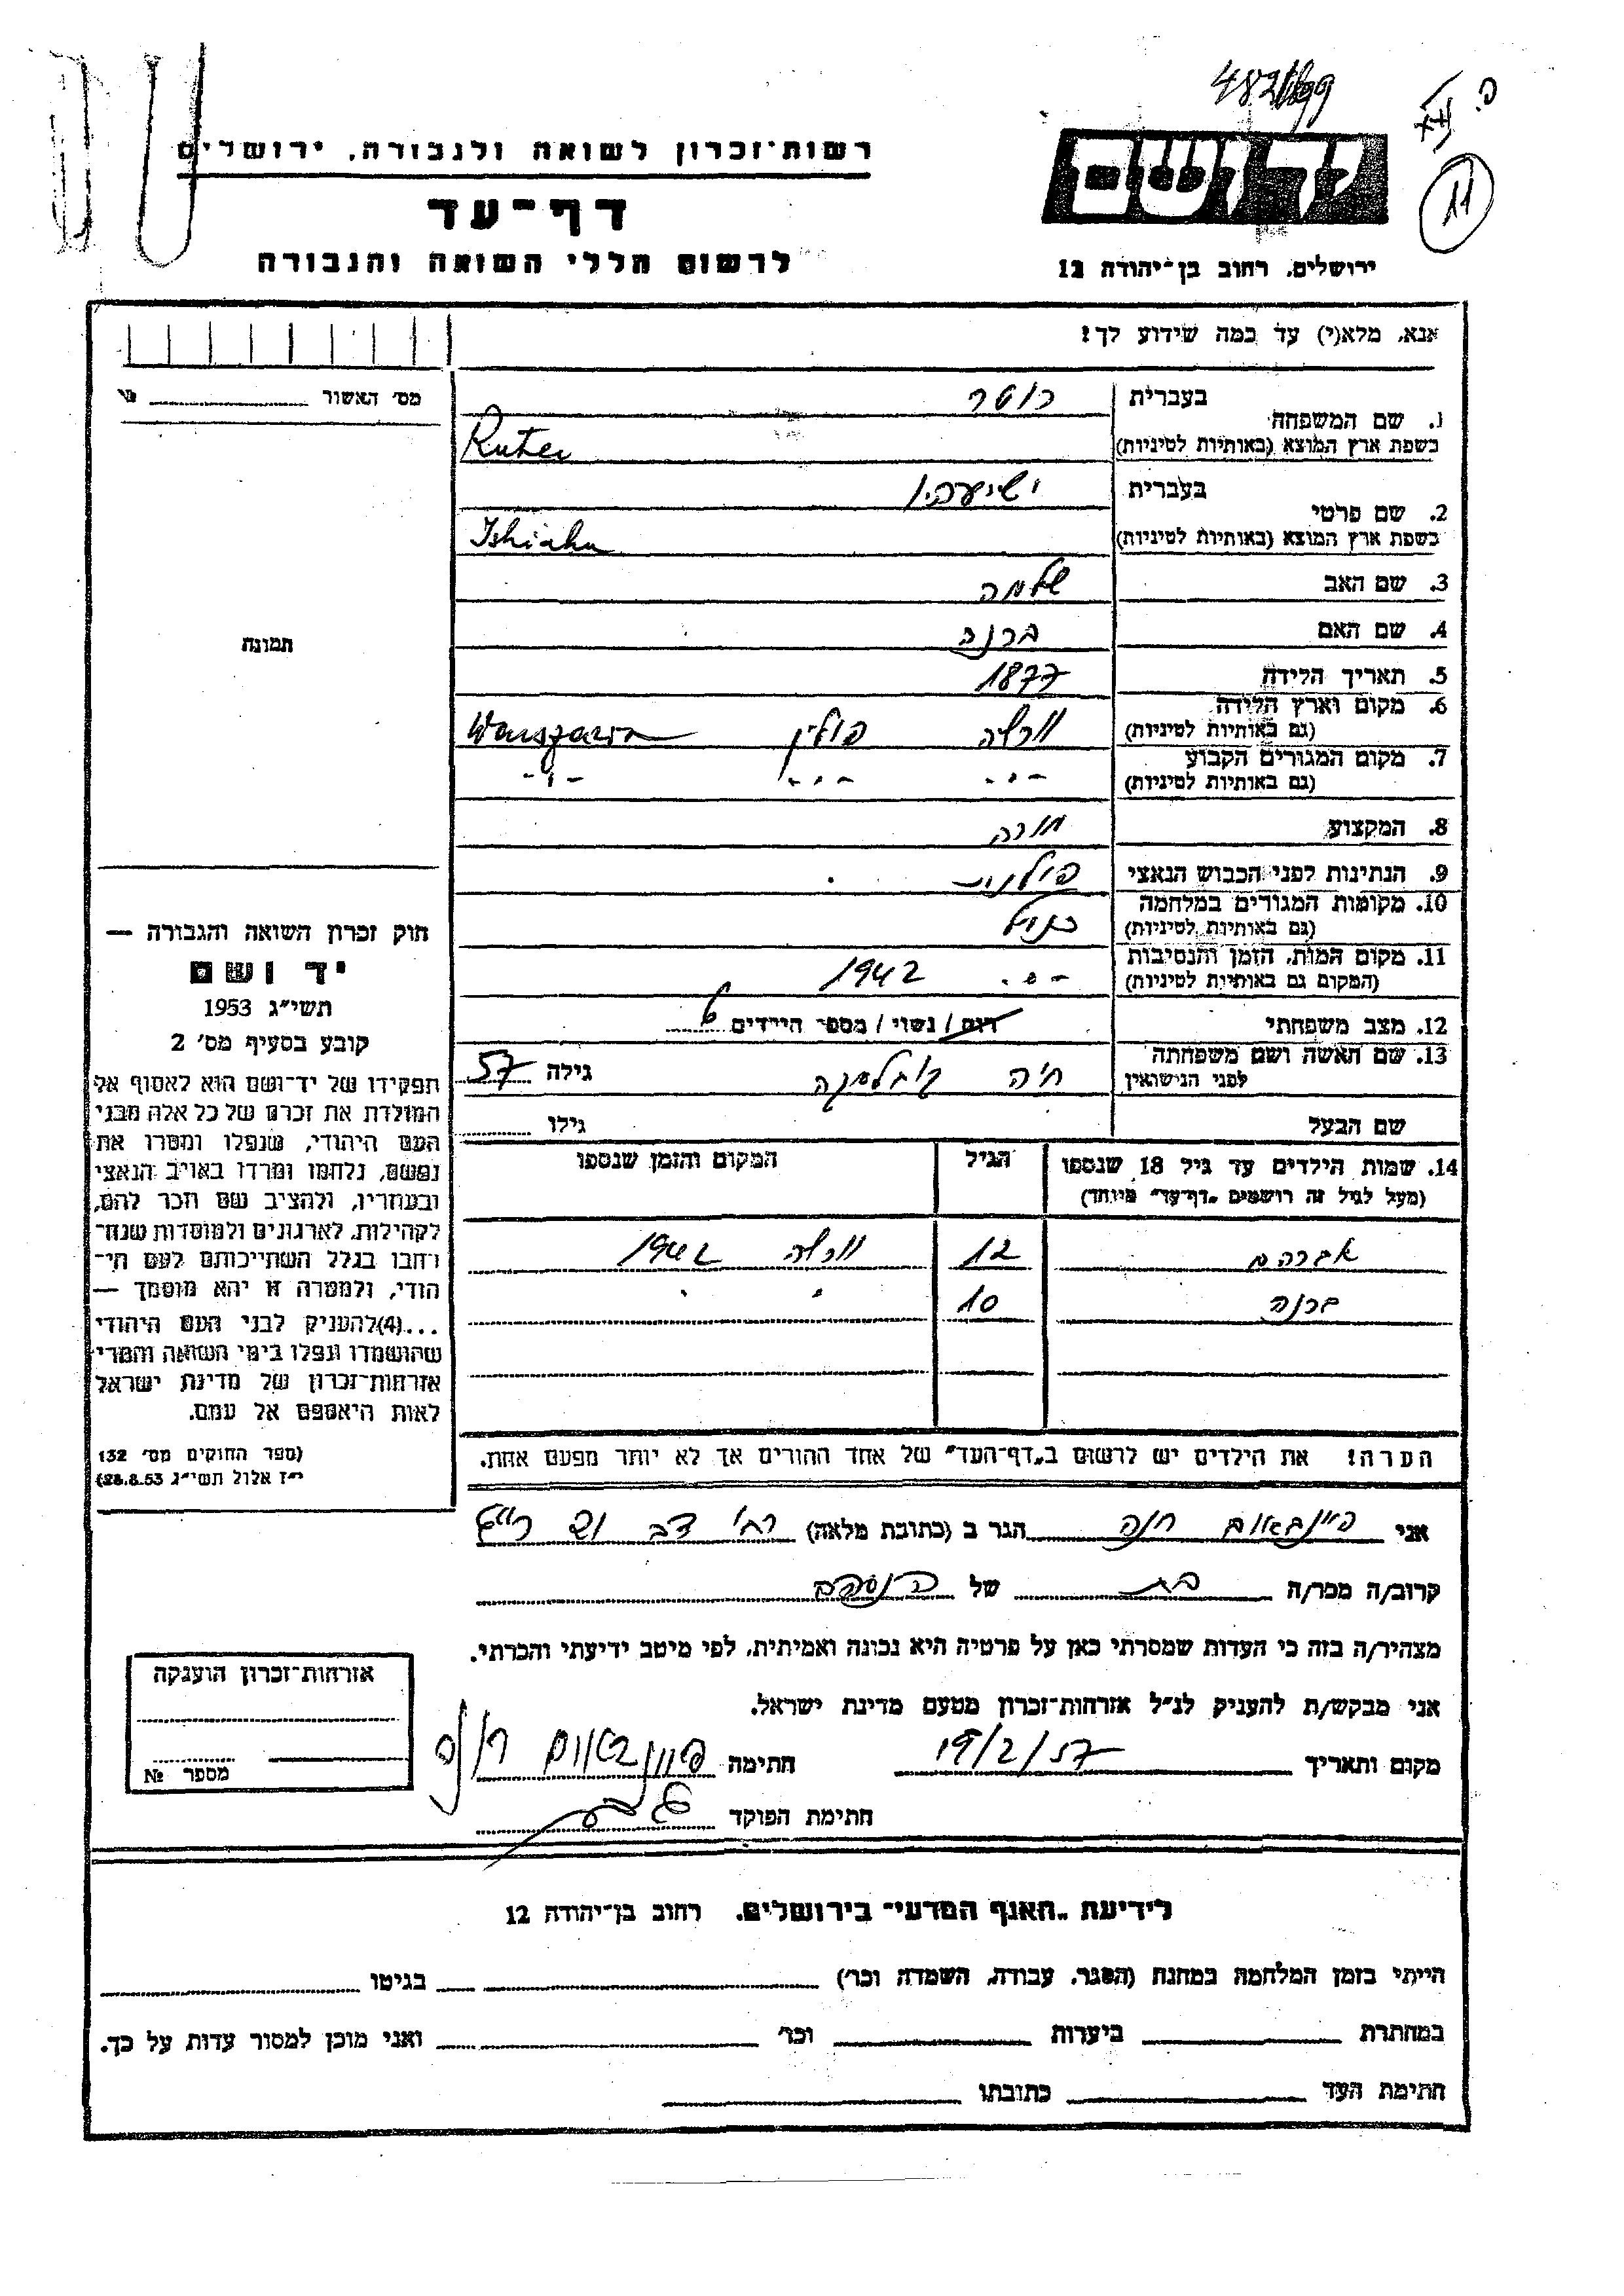 482/199
פ. XII
11
יד ושם
ירושלים, רחוב בן־יהודה 12
רשות־זכרון לשואה ולגבורה, ירושלים
דף־עד
לרשום חללי השואה והגבורה
אנא, מלא(י) עד כמה שידוע לך!
מס׳ האשור №
1. שם המשפחה בעברית רוטר
בשפת ארץ המוצא (באותיות לטיניות) Ruter
2. שם פרטי בעברית ישיעהו
בשפת ארץ המוצא (באותיות לטיניות) Ishiahu
3. שם האב שלמה
4. שם האם ברנה
5. תאריך הלידה 1877
6. מקום וארץ הלידה (גם באותיות לטיניות) ורשה פולין Warszawa
7. מקום המגורים הקבוע (גם באותיות לטיניות) -"- -"- -"-
8. המקצוע מורה
9. הנתינות לפני הכבוש הנאצי פולנית
10. מקומות המגורים במלחמה (גם באותיות לטיניות) כנ"ל
11. מקום המות, הזמן והנסיבות (המקום גם באותיות לטיניות) -"- 1942
12. מצב משפחתי רווק / נשוי / מספר הילדים 6
13. שם האשה ושם משפחתה לפני הנישואין חיה גילה 57
שם הבעל גילו
14. שמות הילדים עד גיל 18 שנספו הגיל המקום והזמן שנספו
(מעל לגיל זה רושמים „דף־עד" מיוחד)
אברהם 12 ורשה 1942
ברנה 10 " "
הערה! את הילדים יש לרשום ב„דף־העד" של אחד ההורים אך לא יותר מפעם אחת.
תמונה
חוק זכרון השואה והגבורה —
יד ושם
תשי״ג 1953
קובע בסעיף מס׳ 2
תפקידו של יד־ושם הוא לאסוף אל
המולדת את זכרם של כל אלה מבני
העם היהודי, שנפלו ומסרו את
נפשם, נלחמו ומרדו באויב הנאצי
ובעוזריו, ולהציב שם וזכר להם,
לקהילות, לארגונים ולמוסדות שנח־
רבו בגלל השתייכותם לעם הי־
הודי, ולמטרה זו יהא מוסמך —
...(4)להעניק לבני העם היהודי
שהושמדו ונפלו בימי השואה והמרי
אזרחות־זכרון של מדינת ישראל
לאות היאספם אל עמם.
(ספר החוקים מס׳ 132
י״ז אלול תשי״ג 28.8.53)
אני פיינבאום חנה הגר ב (כתובת מלאה) רח׳ דב
קרוב/ה מכר/ה בת של הנספה
מצהיר/ה בזה כי העדות שמסרתי כאן על פרטיה היא נכונה ואמיתית, לפי מיטב ידיעתי והכרתי.
אני מבקש/ת להעניק לנ״ל אזרחות־זכרון מטעם מדינת ישראל.
מקום ותאריך 19/2/57 חתימה פיינבאום חנה
חתימת הפוקד
אזרחות־זכרון הוענקה
מספר №
לידיעת „האגף המדעי" בירושלים, רחוב בן־יהודה 12
הייתי בזמן המלחמה במחנה (הסגר, עבודה, השמדה וכר׳) בגיטו
במחתרת ביערות וכר׳ ואני מוכן למסור עדות על כך.
חתימת העד כתובתו